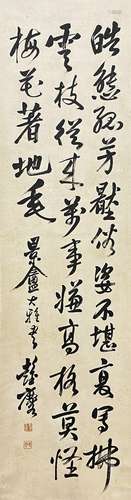 皓態孤芳壓俗姿不堪復寫拂
雲枝從來萬事嫌高格莫怪
梅花著地垂
景盦大雅